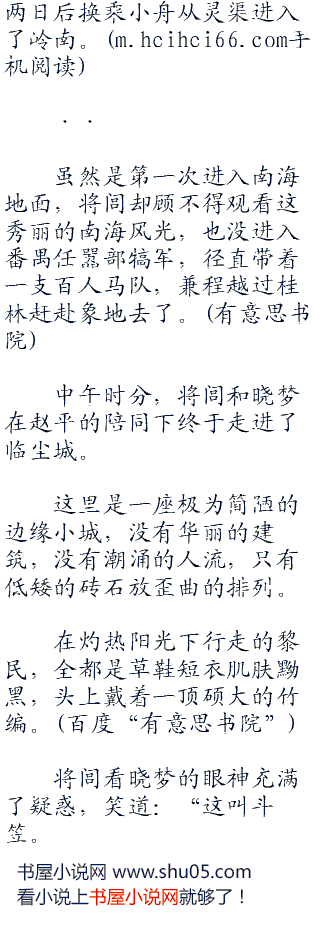 两日后换乘小舟从灵渠进入
了岭南。(m.hcihci66.com手
机阅读)
. .
虽然是第一次进入南海
地面，将闾却顾不得观看这
秀丽的南海风光，也没进入
番禺任嚣部犒军，径直带着
一支百人马队，兼程越过桂
林赶赴象地去了。(有意思书
院)
中午时分，将闾和晓梦
在赵平的陪同下终于走进了
临尘城。
这里是一座极为简陋的
边缘小城，没有华丽的建
筑，没有潮涌的人流，只有
低矮的砖石放歪曲的排列。
在灼热阳光下行走的黎
民，全都是草鞋短衣肌肤黝
黑，头上戴着一顶硕大的竹
编。(百度“有意思书院”)
将闾看晓梦的眼神充满
了疑惑，笑道：“这叫斗
笠。
书屋小说网 www.shu05.com
看小说上书屋小说网就够了！